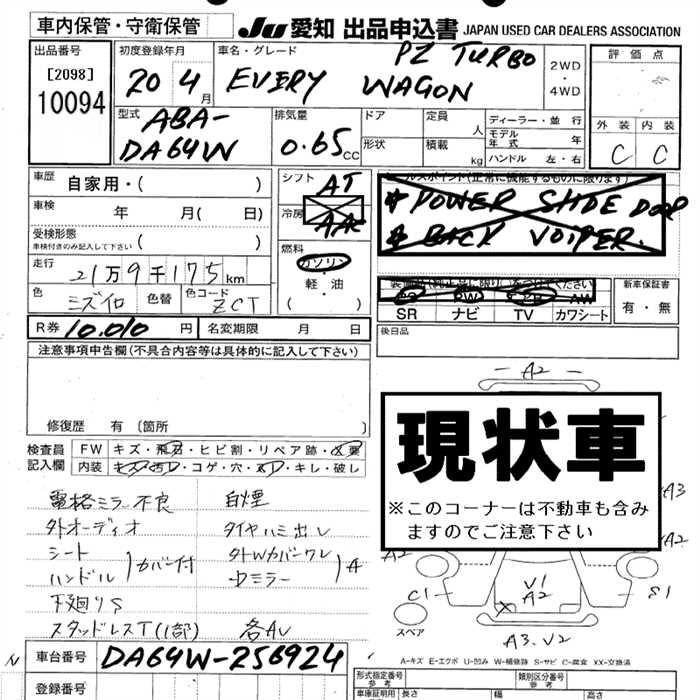 車内保管・守衛保管
JU 愛知 出品申込書 JAPAN USED CAR DEALERS ASSOCIATION
出品番号
[2098]
10094
初度登録年月
20 4月
車名・グレード
PZ TURBO
EVERY WAGON
2WD
・
4WD
評価点
外装 内装
C C
型式
ABA-
DA64W
排気量
0.65cc
ドア
形状
定員
人
積載
kg
ディーラー・並行
モデル年式 年
ハンドル 左・右
車歴
自家用・( )
車検 年 月( 日)
受検形態
車検付きのみ記入して下さい ( )
走行
21万9千175km
色
ミズイロ
色替
色コード
ZCT
シフト
AT
冷房
AAC
燃料
ガソリン
・
軽・油
( )
セールスポイント(正常に機能するものに限ります)
* POWER SLIDE DOOR
* BACK VOIPER.
装備品(純正品に限り)○をつけてください
PS PW エアB AW
SR ナビ TV カワシート
新車保証書
有・無
R券 10,010 円
名変期限 月 日
後日品
注意事項申告欄(不具合内容等は具体的に記入して下さい)
修復歴 有 〔箇所 〕
検査員
記入欄
FW キズ・飛石・ヒビ割・リペア跡・X要
内装 キズ・汚レ・コゲ・穴・スレ・キレ・破し
電格ミラー不良
外オーディオ
シート
ハンドル
カバー付
下廻りS
スタッドレスT(1部)
白煙
タイヤハミ出し
外Wカバーワレ
中ミラー
A
各AV
現状車
※このコーナーは不動車も含み
ますのでご注意下さい
A2
A3
A2
C1
V1
A2
S1
スペア
A3.V2
A-キズ E-エクボ U-凹み W-補修跡 S-サビ C-腐食 XX-交換済
N
車台番号 DA64W-256924
登録番号
形式指定番号
参考
類別区分番号
参考
車庫証明用
参考
長さ
幅
高さ